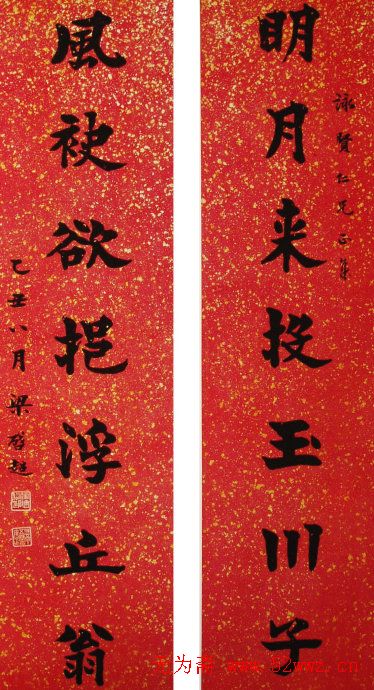 詠賢仁兄正
明月来投玉川子
風袂欲挹浮丘翁
乙丑八月梁啓超
为斋 www.52wwz.cn